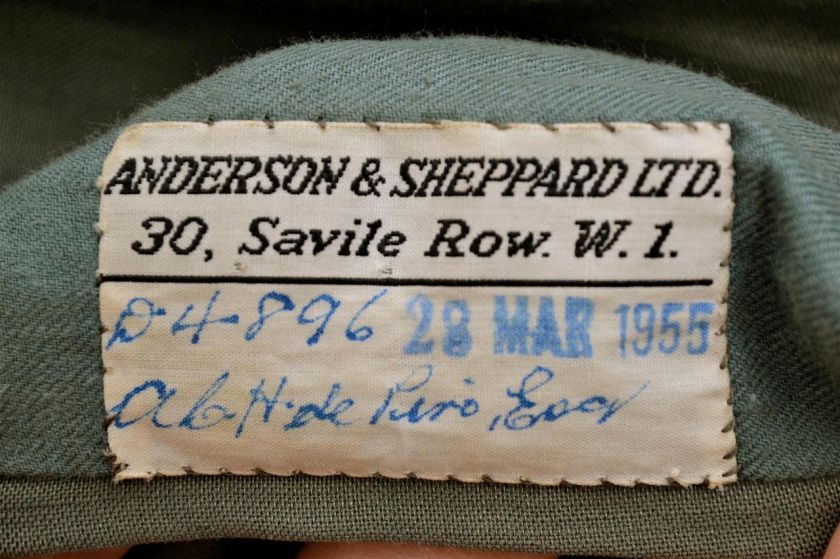 ANDERSON & SHEPPARD LTD.
30, Savile Row. W. 1.
D 4896 28 MAR 1955
H. de Piro, Esq